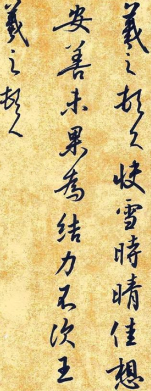 羲之頓首快雪時晴佳想
安善未果為結力不次王
羲之頓首